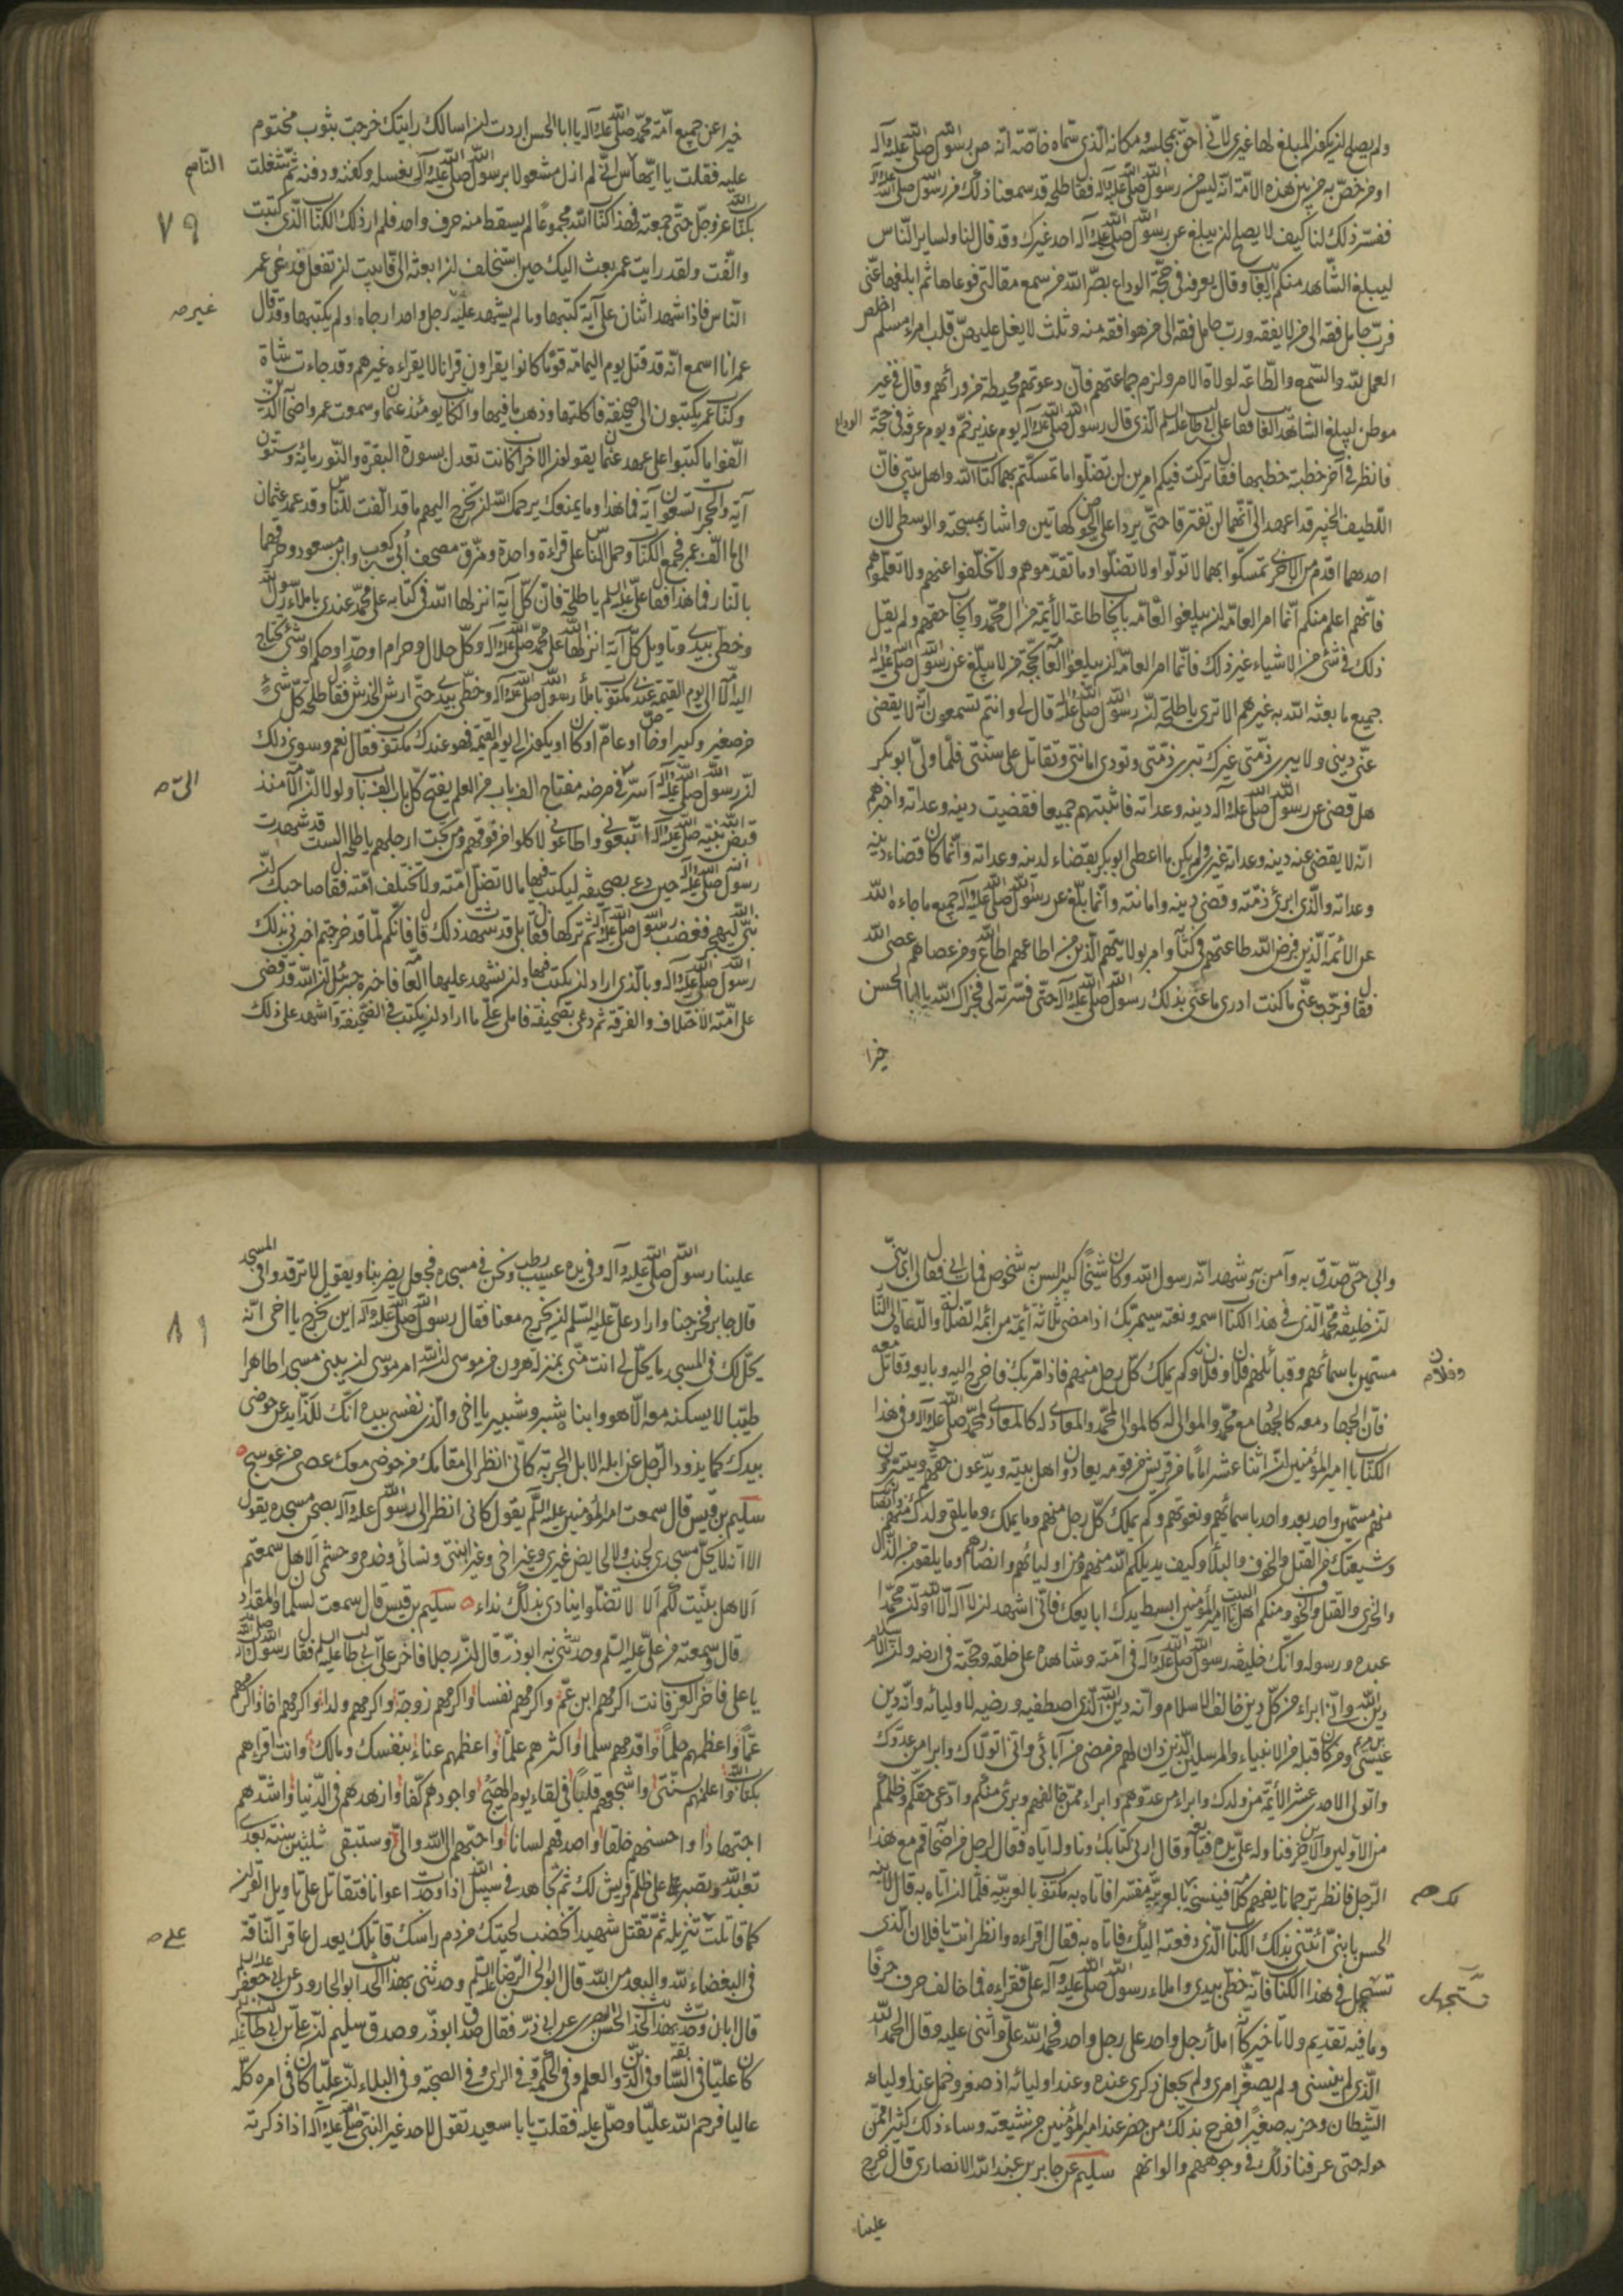 ولم يصلح لنز يكون المبلغ لها غيري لانّي احق بمجلسه ومكانه الّذي سمّاه خاصّة انّه من رسول الله صلى الله عليه وآله
او من خصّ به من بين هذه الامّة انّه ليس من رسول الله صلى الله عليه وآله فقال طلحة قد سمعنا ذلك من رسول الله صلى الله عليه وآله
ففسّر ذلك لنا كيف لا يصلح لنز يبلغ عن رسول الله صلى الله عليه وآله احد غيرك وقد قال لنا ولساير النّاس
ليبلغ الشّاهد منكم الغايب وقال بعرفة في حجّة الوداع نصّر الله من سمع مقالتي فوعاها ثم ابلغها عنّي
فربّ حامل فقه الى من لا يفقه وربّ حامل فقه الى من هو افقه منه وثلث لا يغل عليهنّ قلب امراء مسلم اخلص
العمل لله والسّمع والطّاعة لولاة الامر ولزم جماعتهم فانّ دعوتهم محيطة من ورائهم وقال في غير
موطن ليبلغ الشاهد الغايب فقال علي بن ابي طالب عليه السلم الّذي قال رسول الله صلى الله عليه وآله يوم غدير خمّ ويوم عرفة في حجّة الوداع
فانظر في آخر خطبة خطبها فقال تركت فيكم امرين لن تضلّوا ما تمسكتم بهما كتاب الله واهل بيتي فانّ
اللّطيف الخبير قد اعهد الىّ انّهما لن يفترقا حتّى يردا على الحوض كهاتين واشار بمسبّحة والوسطى لان
احدهما اقدم من الاخرى تمسكّوا بهما لا تولّوا ولا تضلّوا وما تقدّموهم ولا تخلّفوا عنهم ولا تعلّموهم
فانّهم اعلم منكم انّما امر العامّة لنز يبلغوا العامّة بايجاب طاعة الأيمّة من ال محمّد وايجاب حقهم ولم يقل
ذلك في شئ من الاشياء غير ذلك فانّما امر العامّة لنز يبلغوا العامّة بحجّة من لا يبلّغ عن رسول الله صلى الله عليه وآله
جميع ما بعثه الله به غيرهم الا ترى يا طلحة لنّز رسول الله صلى الله عليه وآله قال لي وانتم تسمعون انّه لا يقضى
عنّي ديني ولا يبرى ذمّتي غيرك تبرى ذمّتي وتودي امانتي وتقاتل على سنّتي فلمّا ولّي ابو بكر
هل قضى عن رسول الله صلى الله عليه وآله دينه وعداته فاتبتهم جميعا فقضيت دينه وعداته واخبرهم
انّه لا يقضى عنه دينه وعداته غيري ولم يكن ما اعطى ابو بكر بقضاء لدينه وعداته وانّما كان قضاء دينه
وعداته والّذي ابرئ ذمّته وقضى دينه وامانته وانّما يبلّغ عن رسول الله صلى الله عليه وآله جميع ما جاء به الله
عن الائمّة الّذين فرض الله طاعتهم في كتابه وامر بولايتهم الّذين من اطاعهم اطاع الله ومن عصاهم عصى الله
فقال فرّجت عنّي ما كنت ادري ما عنى بذلك رسول الله صلى الله عليه وآله حتّى فسّرته لي فجزاك الله يا ابا الحسن
خيرا
خيرا عن جميع امّة محمّد صلى الله عليه وآله يا ابا الحسن اردت لنز اسالك رايتك خرجت بثوب مختوم
عليه فقلت يا ايّها الناس انّي لم ازل مشغولا برسول الله صلى الله عليه وآله بغسله وكفنه ودفنه ثمّ شغلت
النّاس
بكتاب الله عزوجلّ حتّى جمعته فهذا كتاب الله مجموعًا لم يسقط منه حرف واحد فلم ار ذلك الكتاب الّذي كتبت
٧٩
والّفت ولقد رايت عمر بعث اليك حين استخلف لنز ابعث الىّ فابيت لنز تفعل فدعى عمر
النّاس فاذا شهد اثنان على آية كتبها وما لم يشهد عليه رجل واحد ارجاه ولم يكتبها وقد قال
غير
عمر انا اسمع انّه قد قتل يوم اليمامة قومًا كانوا يقراون قرانا لا يقراءه غيرهم وقد جاءت شاة
وكتاب عمر يكتبون الى صحيفة فاكلتها وذهب ما فيها والكاتب يومئذ عثمان وسمعت عمر واصحابه الذين
الّفوا ما كتبوا على عهد عثمان يقولون لنز الاحزاب كانت تعدل بسورة البقرة والنّور مائة وستون
آية والحجر تسعون آية فما هذا وما يمنعك يرحمك الله لنز تخرج اليهم ما قد الّفت للنّاس وقد عمد عثمان
الى ما الّف عمر فجمع الكتاب وحمل الناس على قراءة واحدة ومزّق مصحف اُبي بن كعب وابن مسعود وحرقهما
بالنار فما هذا فقال علي عليه السلم يا طلحة فانّ كلّ آية انزلها الله في كتابه على محمّد عندي باملاء رسول الله
وخطّي بيدي وتاويل كلّ آية انزلها الله على محمّد صلى الله عليه وآله وكلّ حلال وحرام او حدّ او حكم او شئ تحتاج
اليه الامّة الى يوم القيمة عندي مكتوب باملاء رسول الله صلى الله عليه وآله وخطّي بيدي حتّى ارش الخدش فقال طلحة كلّ شئ
من صغير وكبير او خاصّ او عامّ او كان او يكون الى يوم القيمة فهو عندك مكتوب فقال نعم وسوى ذلك
لنّز رسول الله صلى الله عليه وآله اسرّ الي في مرضه مفتاح الف باب من العلم يفتح كلّ باب الف باب ولو لا لنّز الامّة منذ
قبض الله نبيّه صلى الله عليه وآله اتّبعوني واطاعوني لاكلوا من فوقهم ومن تحت ارجلهم يا طلحة الست قد شهدت
رسول الله صلى الله عليه وآله حين دعى بصحيفة ليكتب فيها ما لا تضلّ امّته ولا تختلف امّته فقال صاحبك لنّز
نبيّ الله ليهجر فغضب رسول الله صلى الله عليه وآله ثم تركها فقال بلى قد شهدت ذلك قال فانّكم لمّا قد خرجتم اخبرني بذلك
رسول الله صلى الله عليه وآله وبالّذي اراد لنز يكتب فيها ولنز يشهد عليها العامّة فاخبره جبرئيل لنّز الله قد قضى
على امّته الاختلاف والفرقة ثم دعى بصحيفة فاملى عليّ ما اراد لنز يكتب في الصّحيفة واشهد على ذلك
وابي حيّ صدّق به وآمن به وشهد انّه رسول الله وكان شيخًا كبير السن به شخوص فمات ابي فقال اي بنيّ
لنّز خليفة محمّد الّذي في هذا الكتاب اسمه ونعته سيمرّ بك اذا مضى ثلاثة أيمّة من ائمّة الضّلالة والدّعاة الى النّار
مسمّين باسمائهم وقبائلهم فلان وفلان وكم يملك كلّ رجل منهم فاذا مرّ بك فاخرج اليه وبايعه وقاتل معه
وفلان
فانّ الجهاد معه كالجهاد مع محمّد والموالى له كالموالى لمحمّد والمعادي له كالمعادي لمحمّد صلى الله عليه وآله وفي هذا
الكتاب يا امير المؤمنين لنّز اثنا عشر امامًا من قريش من قومه يعادون اهل بيته ويدّعون حقّهم
منهم مسمّين واحد بعد واحد باسمائهم ونعوتهم وكم يملك كلّ رجل منهم وما يملك وما يلقى ولدك منهم
وشيعتك من القتل والخوف والبلاء وكيف يديلكم الله منهم ومن اوليائهم وانصارهم وما يلقون من الذّلّ
والخزى والقتل والخوف منكم اهل البيت يا امير المؤمنين ابسط يدك ابايعك فانّي اشهد لنز لا اله الّا الله ولنّز محمّدا
عبده ورسوله وانّك خليفة رسول الله صلى الله عليه وآله في امّته وشاهده على خلقه وحجّته في ارضه ولنّز الاسلام
دين الله وانّي ابراء من كلّ دين خالف الاسلام وانّه دين الله الّذي اصطفيه ورضيه لاوليائه وانّه دين
عيسى بن مريم ومن كان قبله من الانبياء والمرسلين الّذين دان لهم من مضى من آبائي وانّي اتولّاك وابرا من عدوّك
واتولى الاحد عشر الأيمّة من ولدك وابراء من عدوّهم وابراء ممّن خالفهم وبرئ منكم وادّعى حقّكم وظلمكم
من الاوّلين والاخرين فناوله عليّ يده فبايعه وقال ارني كتابك وناوله ايّاه فقال لرجل من اصحابه قم مع هذا
الرّجل فانظر ترجمانا يفهم كلامه فينسخه بالعربيّة مفسّرا فاتاه به مكتوب بالعربيّة فلمّا لنز اتاه به قال لابنه
لك
الحسن يا بنيّ ائتني بذلك الكتاب الّذي دفعته اليك فاتاه به فقال اقراءه وانظر انت يا فلان الذي
تستجهل في هذا الكتاب فانّه خطّي بيدي واملاء رسول الله صلى الله عليه وآله علىّ فقراءه فما خالف حرف حرفًا
تستجهل
وما فيه تقديم ولا تاخير كانّه املاء رجل واحد على رجل واحد فحمد الله عليّ واثنى عليه وقال الحمد لله
الّذي لم ينسني ولم يصغّر امري ولم يجعل ذكري عنده وعند اوليائه اذ صغر وخمل عند اولياء
الشيطان وحزبه صغيرًا ففرح بذلك من حضر عند امير المؤمنين من شيعته وساء ذلك كثير ممّن
حوله حتى عرفنا ذلك في وجوههم والوانهم سليم عن جابر بن عبد الله الانصاري قال خرج
علينا
علينا رسول الله صلى الله عليه وآله وفي يده عسيب رطب ونحن في مسجده فجعل يضربنا ويقول لا ترقدوا في المسجد
قال جابر فخرجنا واراد عليّ عليه السّلم لنز يخرج معنا فقال رسول الله صلى الله عليه وآله اين تخرج يا اخي انّه
٨١
يحلّ لك في المسجد ما يحلّ لي انت منّي بمنزلة هرون من موسى لنّز الله امر موسى لنز يبني مسجدا طاهرا
طيّبا لا يسكنه معه الّا هو وابناه شبر وشبير يا اخي والّذي نفسي بيده انّك للذّايد عن حوضي
بيدك كما يذود الرّجل عن ابله الابل الجربة كانّي انظر الى مقامك من حوضي معك عصى من عوسج
سليم بن قيس قال سمعت امير المؤمنين عليه السلم يقول كاني انظر الى رسول الله عليه وآله بصحن مسجده يقول
الا انّه لا يحلّ مسجدي لجنب ولا لحايض غيري وغير اخي وغير ابنتي ونسائي وخدمي وحشمي الا هل سمعتم
الا هل بيّنت لكم الا لا تضلّوا ينادي بذلك نداء سليم بن قيس قال سمعت سلمان والمقداد
قال وسمعته من علي عليه السّلم وحدّثني به ابو ذرّ قال لنّز رجلا فاخر علي بن ابي طالب عليه السلم فقال رسول الله صلى الله عليه وآله
يا علي فاخر العرب فانت اكرمهم ابن عمّ واكرمهم نفسا واكرمهم زوجة واكرمهم ولدا واكرمهم اخا واكرمهم
عمّا واعظمهم حلمًا واقدمهم سلما واكثرهم علمًا واعظمهم عناء بنفسك ومالك وانت اقراءهم
بكتاب الله واعلمهم بسنّتي واشجعهم قلبًا في لقاء يوم الهيج واجودهم كفّا وازهدهم في الدّنيا واشدّهم
اجتهادا واحسنهم خلقا واصدقهم لسانا واحبّهم الى الله والىّ وستبقى ثلثين سنة بعدي
تعبد الله وتصبر على ظلم قريش لك ثم تجاهد في سبيل الله اذا وجدت اعوانا فتقاتل على تاويل القران
كما قاتلت تنزيله ثمّ تقتل شهيدا تخضب لحيتك من دم راسك قاتلك يعدل عاقر النّاقة
على
في البغضاء لله والبعد من الله قال ابو الحسن الرّضا عليه السلم وحدثني بهذا الحديث ابو الجارود عن ابي جعفر عليه السلم
قال ابان وحدثت بهذا الحديث الحسن البصري عن ابي ذرّ فقال صدق ابو ذرّ وصدق سليم لنّز علي بن ابي طالب
كان عليّا في السّابقة وفي الدّين والعلم وفي الحكمة وفي الراى وفي الصحبة وفي البلاء لنّز عليّا كان في امره كلّه
عاليا فرحم الله عليّا وصلّى عليه فقلت يا با سعيد تقول لاحد غير النبيّ صلى الله عليه وآله اذا ذكرته